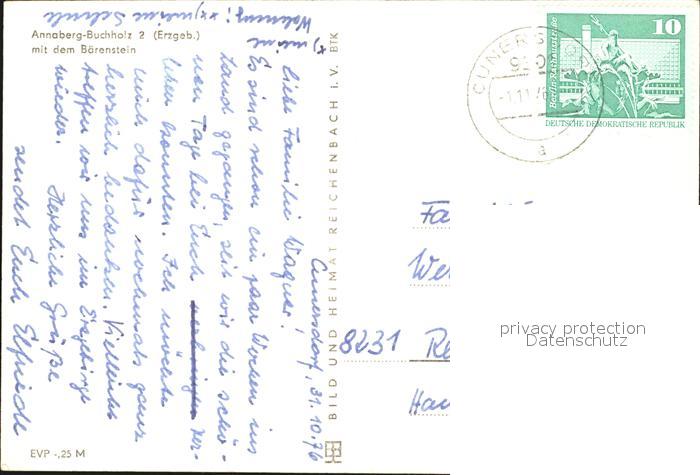 Annaberg-Buchholz 2 (Erzgeb.)
mit dem Bärenstein
Cunersdorf, 31.10.76
Liebe Familie Wagner!
Es sind schon ein paar Wochen ins
Land gegangen, seit wir die schö-
nen Tage bei Euch ver-
leben konnten. Ich möchte
mich dafür nochmals ganz
herzlich bedanken. Vielleicht
treffen wir uns im Erzgebirge
wieder. Herzliche Grüße
sendet Euch Elfriede
x) meine
Wohnung; xx) meine Schule
EVP -,25 M
BILD UND HEIMAT REICHENBACH i. V. BTK
CUNERS
a
10
Berlin, Rathausstraße
DEUTSCHE DEMOKRATISCHE REPUBLIK
Fa
We
8231 Re
Hau
privacy protection
Datenschutz